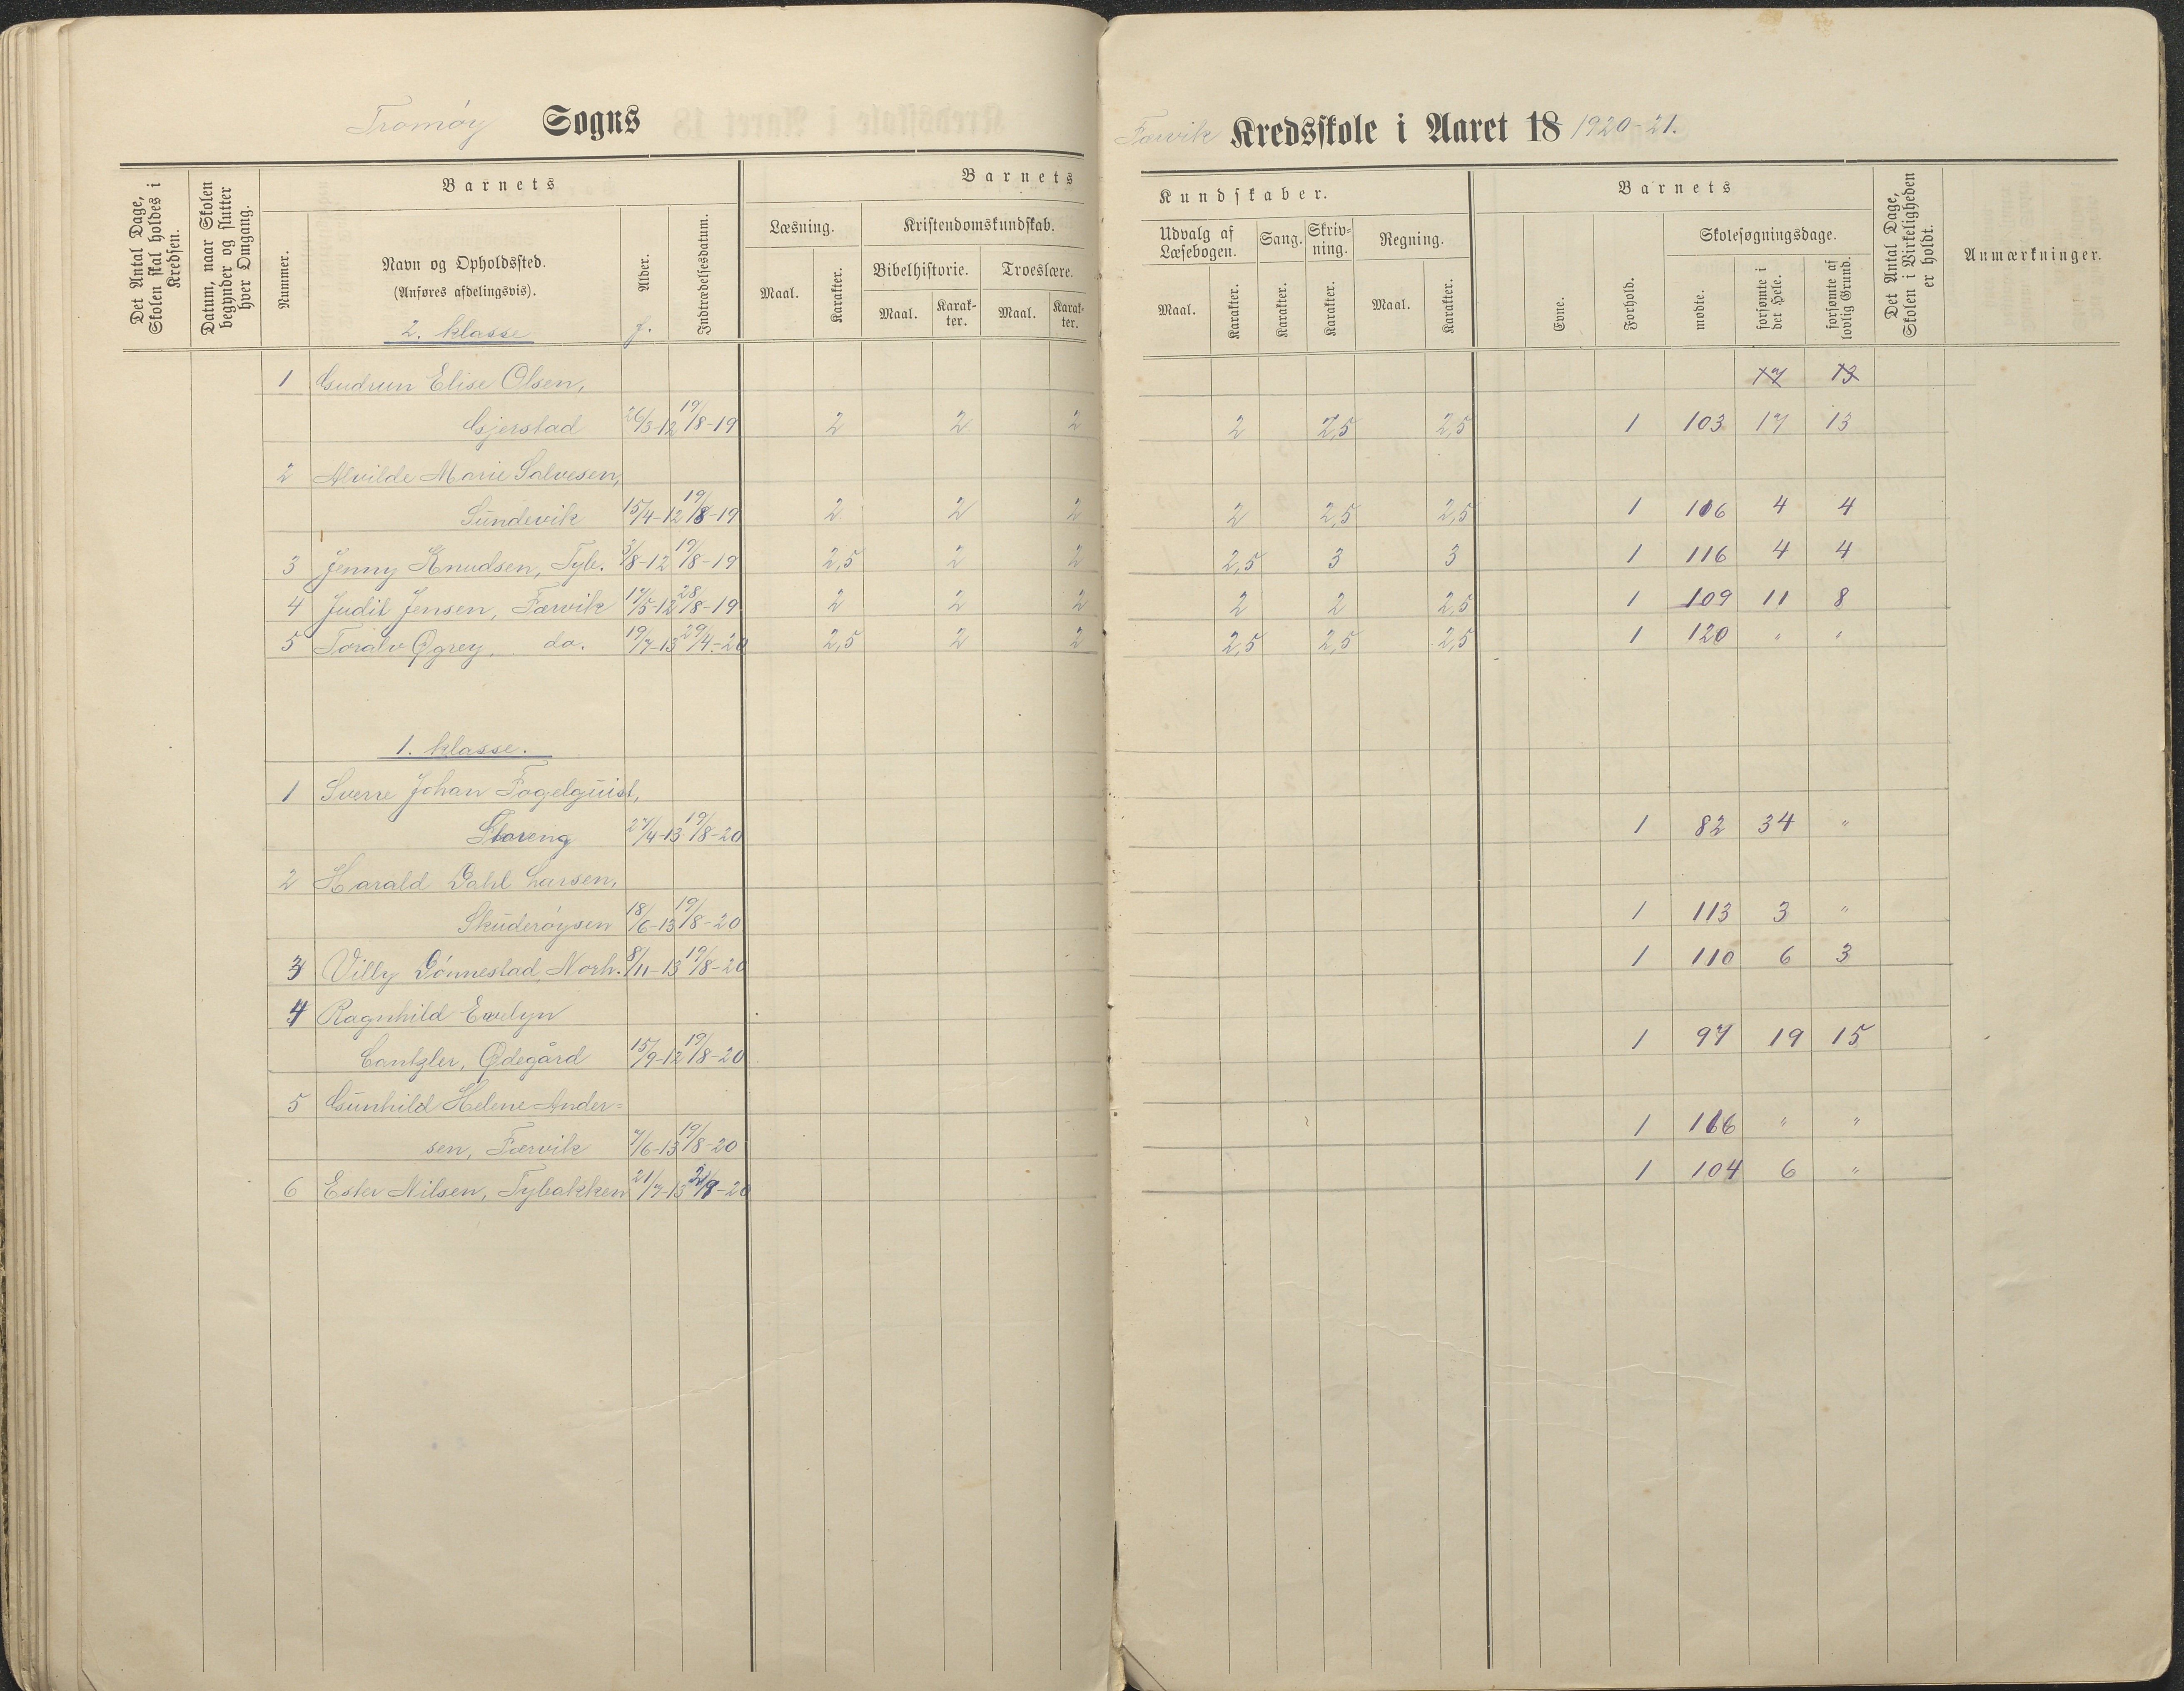 Tromøy Sogns
Færvik Kredsskole i Aaret 18 1920-21.
Det Antal Dage, Skolen skal holdes i Kredsen.
Datum, naar Skolen begynder og slutter hver Omgang.
Barnets
Nummer.
Navn og Opholdssted.
(Anføres afdelingsvis).
2. klasse
Alder.
f.
Indtrædelsesdatum.
Barnets
Læsning.
Maal.
Karakter.
Kristendomskundskab.
Bibelhistorie.
Maal.
Karakter.
Troeslære.
Maal.
Karakter.
Kundskaber.
Udvalg af Læsebogen.
Maal.
Karakter.
Sang.
Karakter.
Skrivning.
Karakter.
Regning.
Maal.
Karakter.
Barnets
Evne.
Forhold.
Skolesøgningsdage.
mødte.
forsømte i det Hele.
forsømte af lovlig Grund.
Det Antal Dage, Skolen i Virkeligheden er holdt.
Anmærkninger.
1 Gudrun Elise Olsen, 17 13
Gjerstad 26/3-12 19/8-19 2 2 2 2 2,5 2,5 1 103 17 13
2 Alvilde Marie Salvesen,
Sündevik 15/4-12 19/8-19 2 2 2 2 2,5 2,5 1 106 4 4
3 Jenny Knudsen, Tyb. 3/8-12 19/8-19 2,5 2 2 2,5 3 3 1 116 4 4
4 Judit Jensen, Færvik 17/5-12 28/8-19 2 2 2 2 2 2,5 1 109 11 8
5 Toralv Øgrey, do. 19/7-13 29/4-20 2,5 2 2 2,5 2,5 2,5 1 120 " "
1. klasse.
1 Sverre Johan Fogelqüist,
Floreng 27/4-13 19/8-20 1 82 34 "
2 Harald Dahl Larsen,
Sküderøysen 18/6-13 19/8-20 1 113 3 "
3 Villy Dønnestad, Norh. 8/11-13 19/8-20 1 110 6 3
4 Ragnhild Evelyn
Cantzler, Ødegård 15/9-12 19/8-20 1 97 19 15
5 Günhild Helene Ander=
sen, Færvik 7/6-13 19/8-20 1 116 " "
6 Ester Nilsen, Tybakken 21/7-13 1 104 6 "